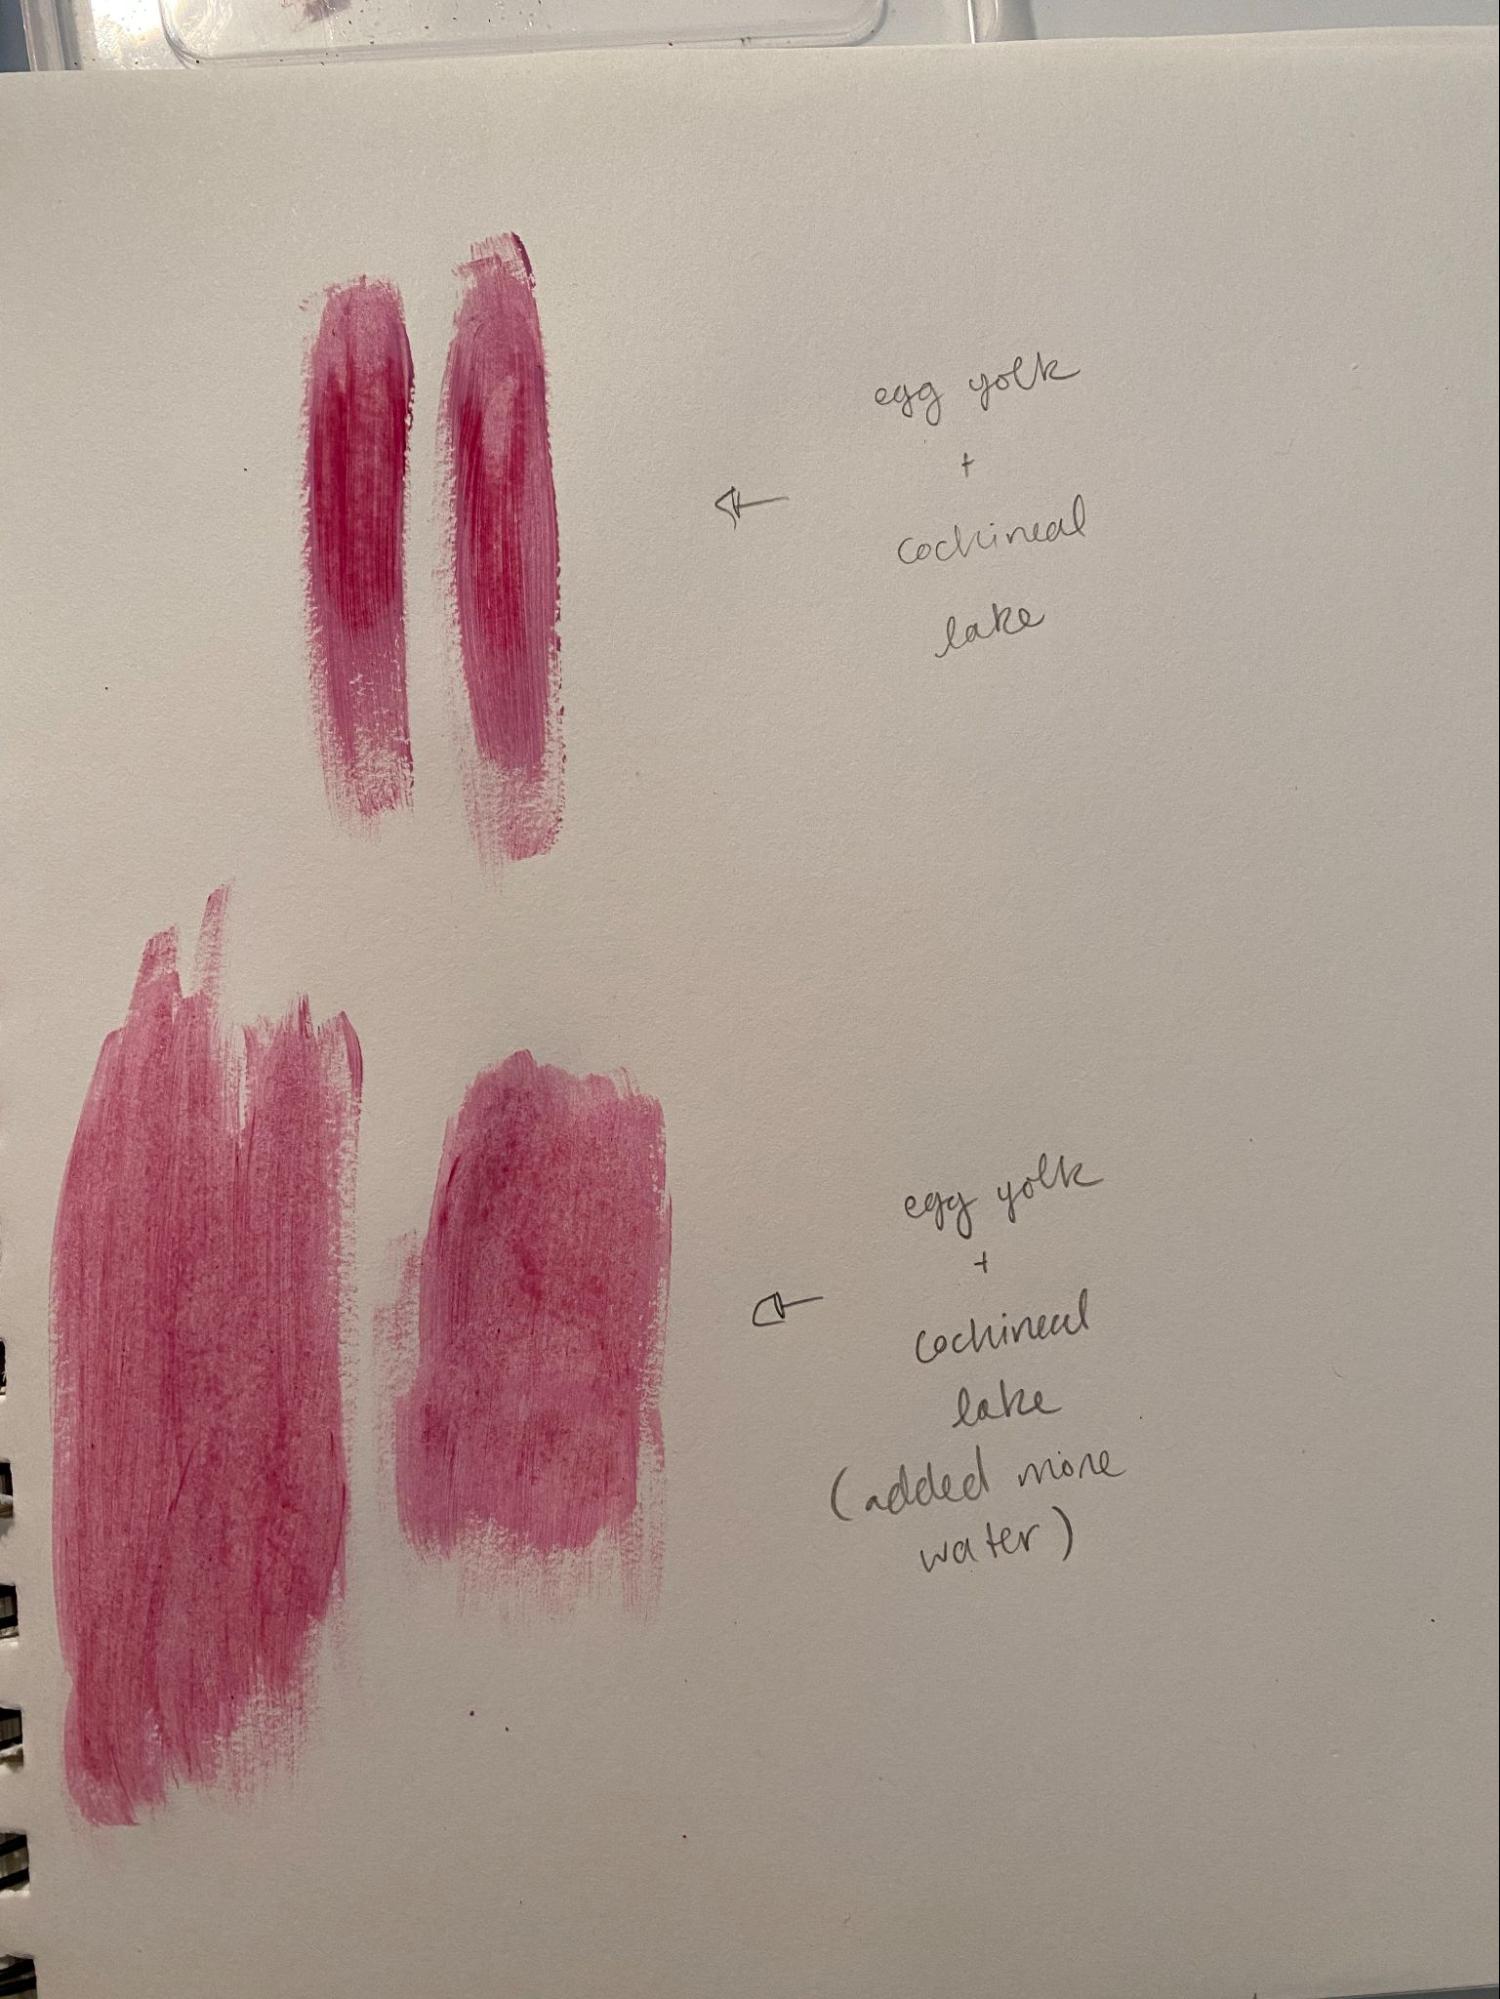 egg yolk
+
cochineal
lake
egg yolk
+
cochineal
lake
(added more
water)